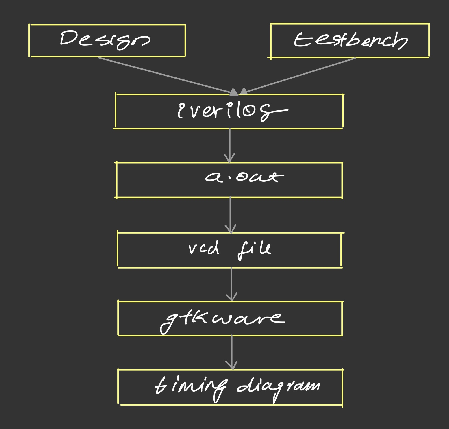 Design
testbench
iverilog
a.out
vcd file
gtkware
timing diagram